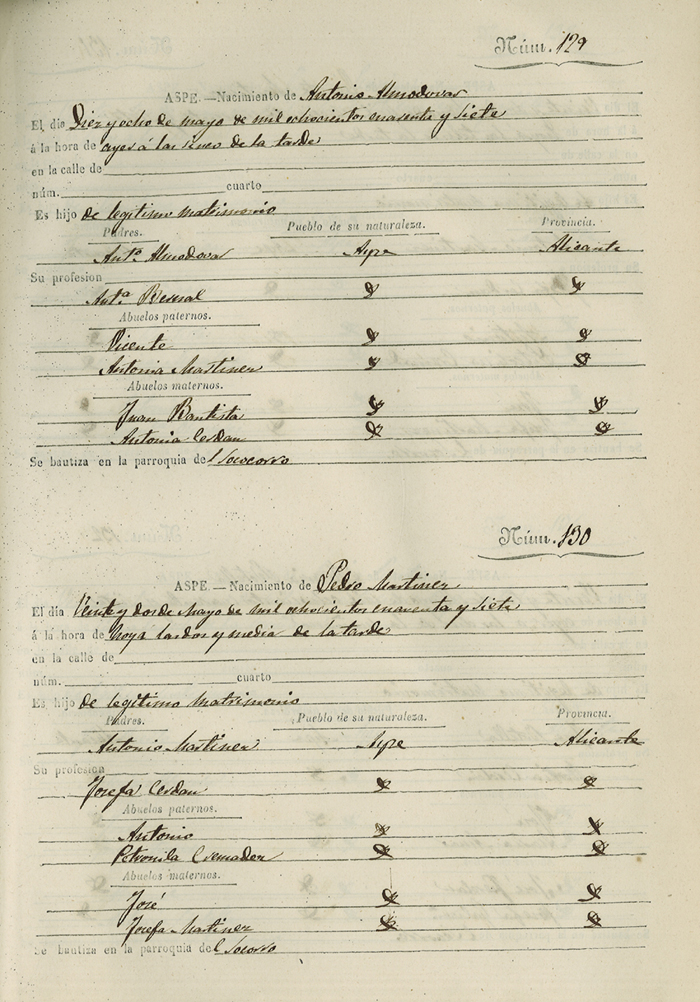 Núm. 129
ASPE.—Nacimiento de Antonio Almodovar
El dia Diez y ocho de mayo de mil ochocientos cuarenta y siete
á la hora de ayer á las cinco de la tarde
en la calle de
núm. cuarto
Es hijo de legitimo matrimonio
Padres. Pueblo de su naturaleza. Provincia.
Antº Almodovar Aspe Alicante
Su profesion
Antª Bernal
Abuelos paternos.
Vicente
Antonia Martinez
Abuelos maternos.
Juan Bautista
Antonia Cerdan
Se bautiza en la parroquia del Socorro
Núm. 130
ASPE.—Nacimiento de Pedro Martinez
El dia Veinte y dos de Mayo de mil ochocientos cuarenta y siete
á la hora de hoy a las dos y media de la tarde
en la calle de
núm. cuarto
Es hijo de legitimo matrimonio
Padres. Pueblo de su naturaleza. Provincia.
Antonio Martinez Aspe Alicante
Su profesion
Josefa Cerdan
Abuelos paternos.
Antonio
Petronila Cremades
Abuelos maternos.
José
Josefa Martinez
Se bautiza en la parroquia del Socorro